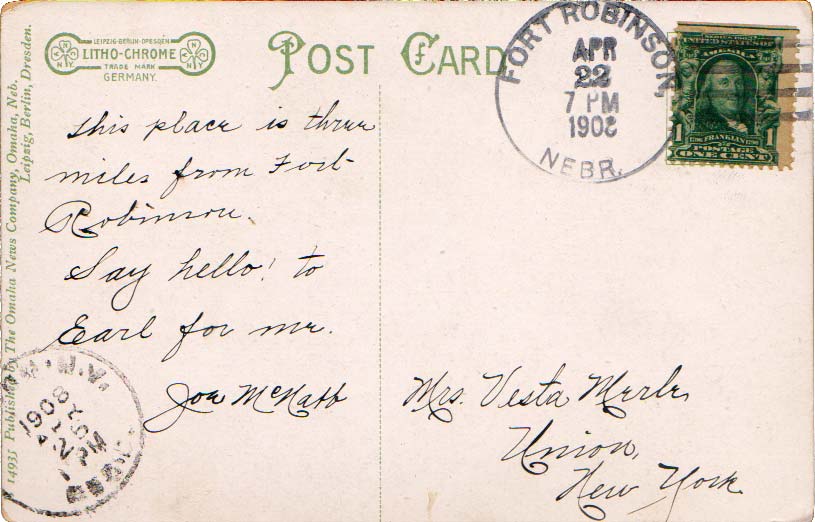 LEIPZIG-BERLIN-DRESDEN
LITHO-CHROME
TRADE MARK
GERMANY.
POST CARD
FORT ROBINSON,
APR
22
7 PM
1908
NEBR.
SERIES 1902
UNITED STATES OF
1
FRANKLIN
POSTAGE
ONE CENT
This place is three
miles from Fort
Robinson.
Say hello! to
Earl for me.
Joe McNabb
Mrs. Vesta Merle
Union,
New York
14935 Published by The Omaha News Company, Omaha, Neb.
Leipzig, Berlin, Dresden.
N.Y.
1908